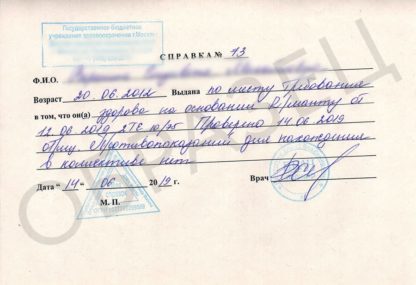 Государственное бюджетное
учреждение здравоохранения г. Москвы
СПРАВКА № 13
Ф.И.О.
Возраст 20.06.2012 Выдана по месту требования
в том, что он(а) здорова на основании R/манту от
12.06.2019 2ТЕ Проверено 14.06.2019
Противопоказаний для нахождения
в коллективе нет
Дата "14" 06 2019 г. Врач
М. П.
ОБРАЗЕЦ